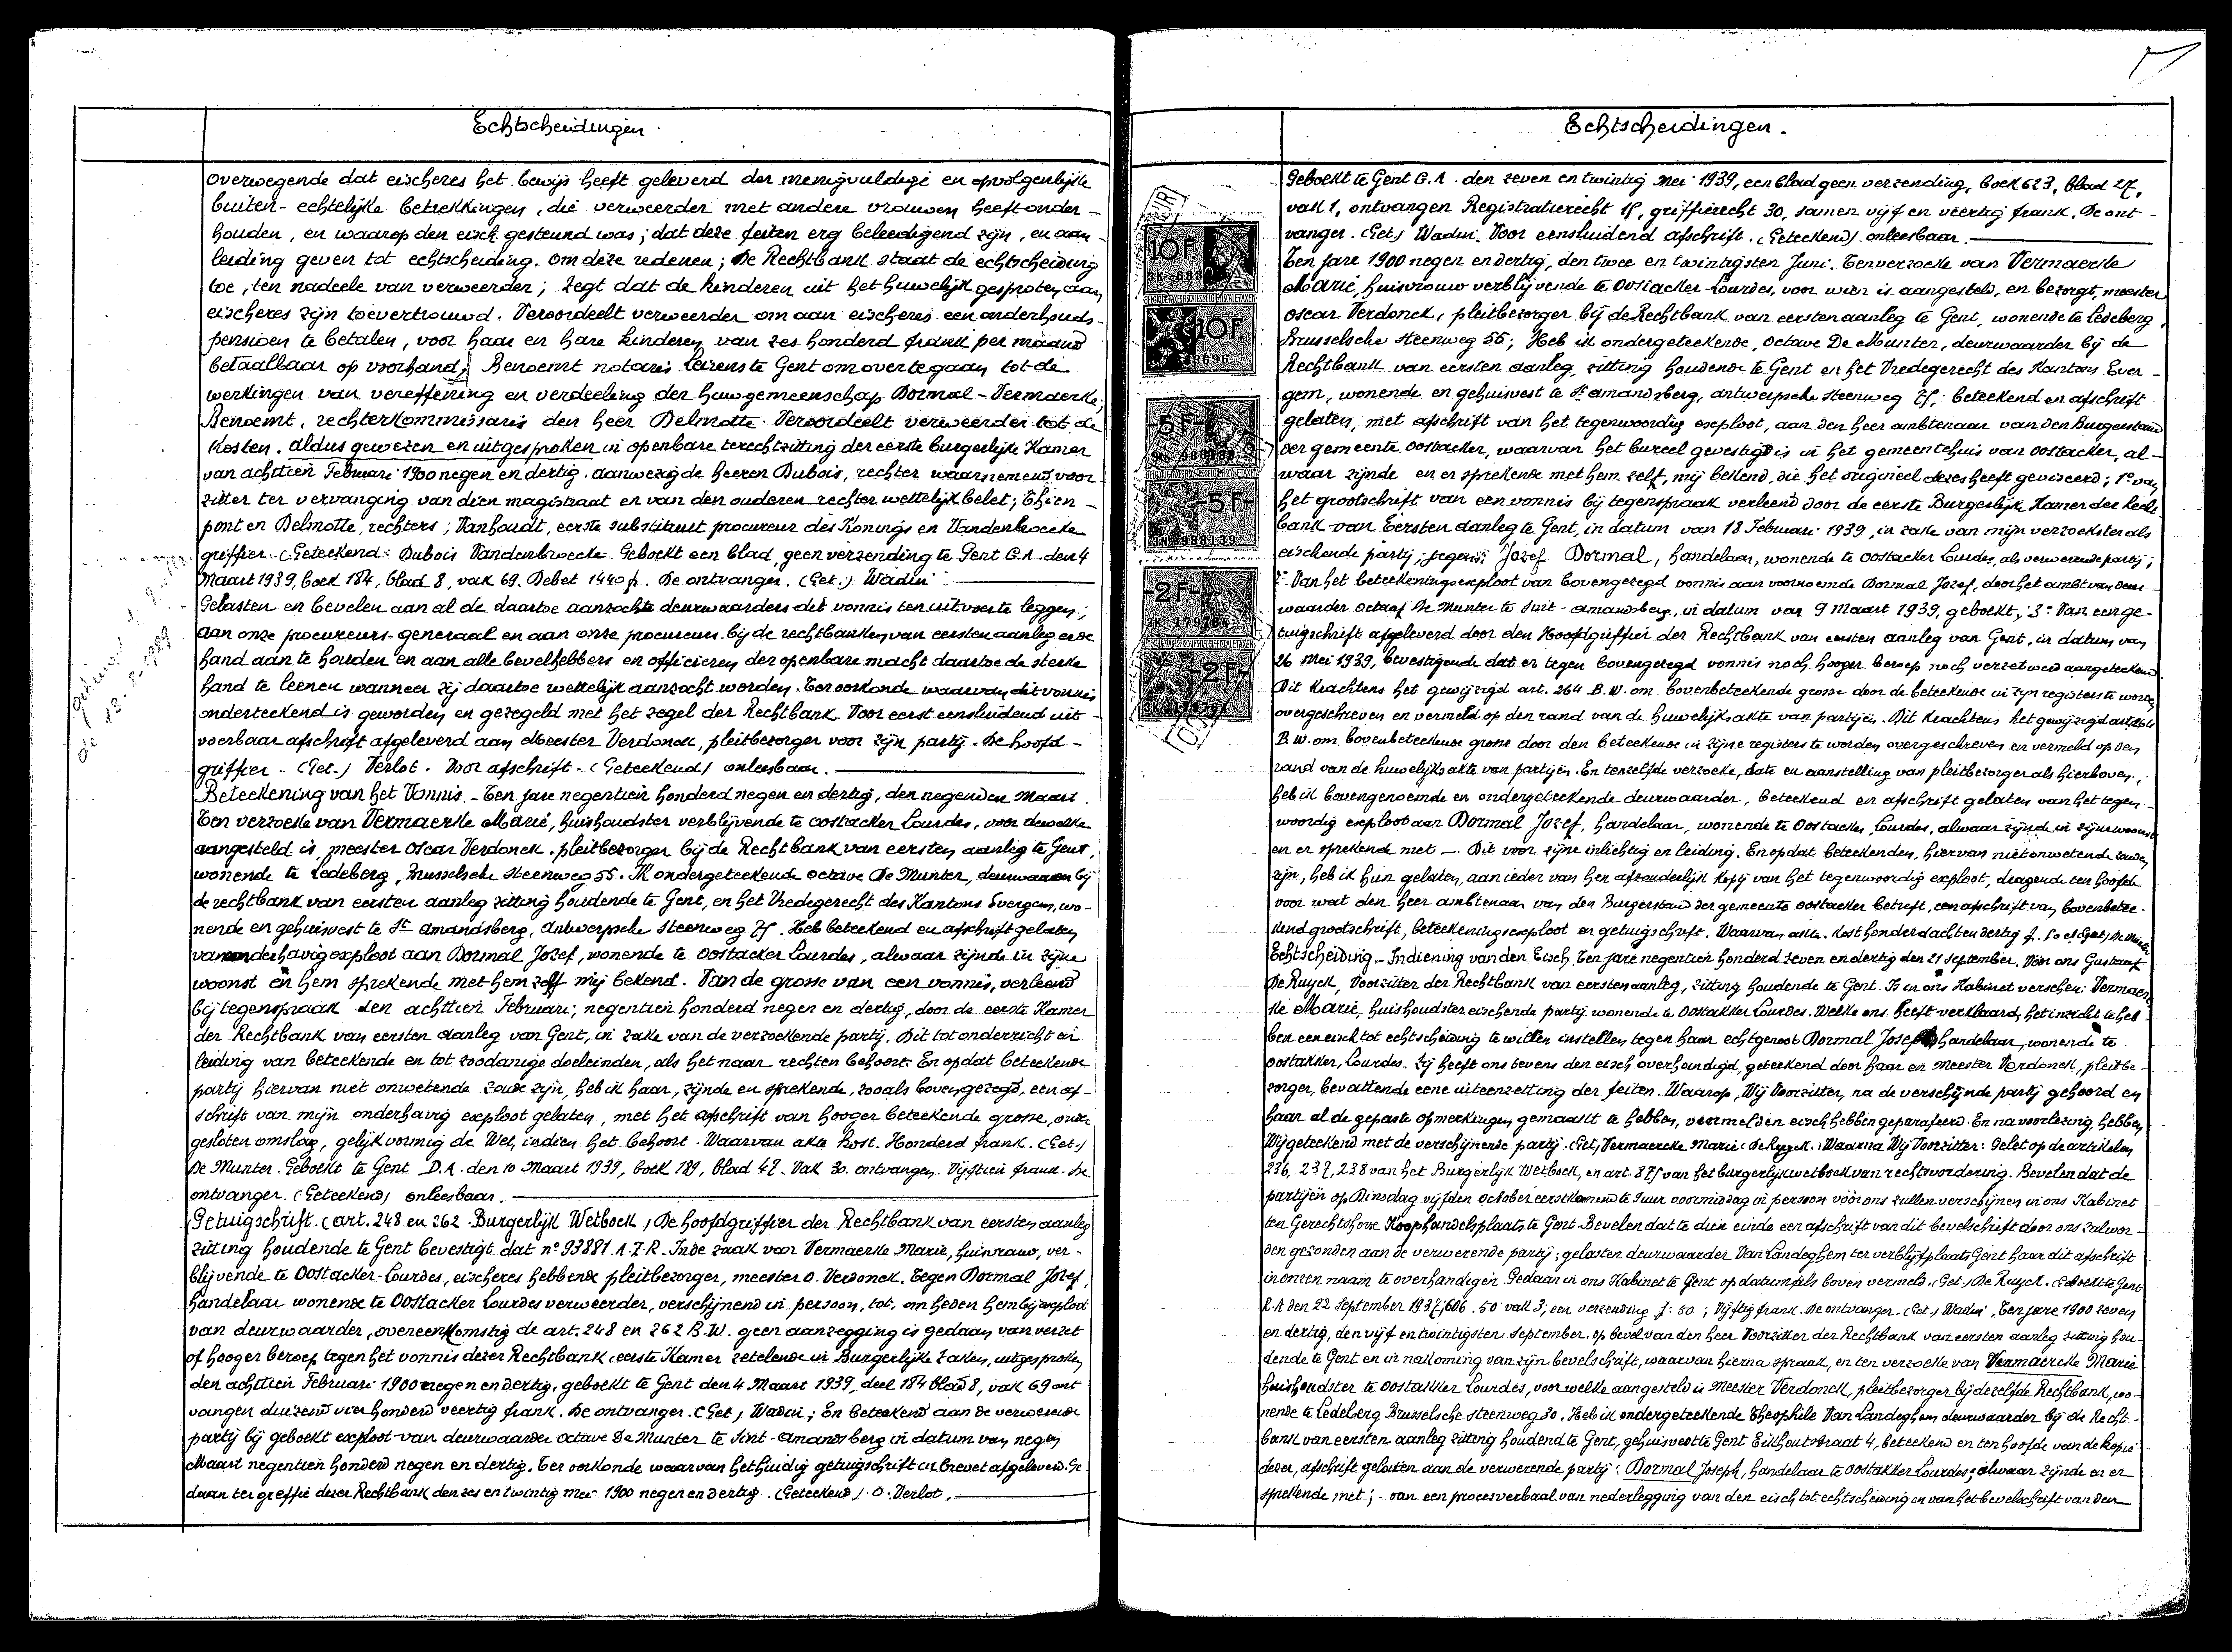 Echtscheidingen.
overwegende dat eischeres het bewijs heeft geleverd der menigvuldige en opvolgenlijke
buiten-echtelijke betrekkingen, die verweerder met andere vrouwen heeft onder-
houden, en waarop den eisch gesteund was; dat deze feiten erg beleedigend zijn, en aan-
leiding geven tot echtscheiding. om deze redenen; De Rechtbank staat de echtscheiding
toe, ten nadeele van verweerder; zegt dat de kinderen uit het huwelijk gesproten aan
eischeres zijn toevertrouwd. Veroordeelt verweerder om aan eischeres een onderhouds-
pensioen te betalen, voor haar en hare kinderen van zes honderd frank per maand
betaalbaar op voorhand; Benoemt notaris te Gent om over te gaan tot de
werkingen van vereffening en verdeeling der huwgemeenschap Dormal-Vermaercke;
Benoemt, rechterkommissaris den heer Delmotte. Veroordeelt verweerder tot de
Kosten. aldus gewezen en uitgesproken in openbare terechtzitting der eerste burgerlijke Kamer
van achttien Februari 1900 negen en dertig. aanwezig de heeren Dubois, rechter waarnemend voor-
zitter ter vervanging van dien magistraat en van den ouderen rechter wettelijk belet; Thien-
pont en Delmotte, rechters; Vanhoudt, eerste substituut procureur des Konings en Vandenbroecke
griffier. (Geteekend: Dubois Vandenbroecke. Geboekt een blad, geen verzending te Gent G.A. den 4
Maart 1939, boek 184, blad 8, vak 69. Debet 1440 f. De ontvanger. (Get.) Wadin
Gelasten en bevelen aan al de daartoe aanzochte deurwaarders dit vonnis ten uitvoer te leggen;
aan onze procureurs-generaal en aan onze procureurs bij de rechtbanken van eersten aanleg er de
hand aan te houden en aan alle bevelhebbers en officieren der openbare macht daartoe de sterke
hand te leenen wanneer zij daartoe wettelijk aanzocht worden. Ter oorkonde waarvan dit vonnis
onderteekend is geworden en gezegeld met het zegel der Rechtbank. Voor eerst eensluidend uit-
voerbaar afschrift afgeleverd aan Meester Verdonck, pleitbezorger voor zijn partij. De hoofd-
griffier. (Get.) Verlot. Voor afschrift. (Geteekend) onleesbaar.
Beteekening van het Vonnis. - Ten jare negentien honderd negen en dertig, den negenden Maart.
Ten verzoeke van Vermaercke Marie, huishoudster verblijvende te oostacker Lourdes, voor dewelke
aangesteld is, meester Oscar Verdonck. pleitbezorger bij de Rechtbank van eersten aanleg te Gent,
wonende te Ledeberg, Brusselsche steenweg 55. Ik ondergeteekende Octave De Munter, deurwaarder bij
de rechtbank van eersten aanleg zitting houdende te Gent, en het Vredegerecht des Kantons Evergem, wo-
nende en gehuisvest te St amandsberg, Antwerpsche Steenweg 75. Heb beteekend en afschrift gelaten
van onderhavig exploot aan Dormal Jozef, wonende te Oostacker Lourdes, alwaar zijnde in zijne
woonst en hem sprekende met hem zelf mij bekend. Van de grosse van een vonnis, verleend
bij tegenspraak den achttien Februari; negentien honderd negen en dertig, door de eerste Kamer
der Rechtbank van eersten aanleg van Gent, in zake van de verzoekende partij. Dit tot onderricht en
leiding van beteekende en tot zoodanige doeleinden, als het naar rechten behoort. En opdat beteekende
partij hiervan niet onwetende zoude zijn, heb ik haar, zijnde en sprekende, zooals boven gezegd, een af-
schrift van mijn onderhavig exploot gelaten, met het afschrift van hooger beteekende grosse, onder
gesloten omslag, gelijkvormig de Wet, indien het behoort. Waarvan akte Kost. Honderd frank. (Get.)
De Munter. Geboekt te Gent D.A. den 10 Maart 1939, boek 189, blad 47. Vak 30. ontvangen. Vijftien frank. De
ontvanger. (Geteekend) onleesbaar.
Getuigschrift. (art. 248 en 262 Burgerlijk Wetboek) De hoofdgriffier der Rechtbank van eersten aanleg
zitting houdende te Gent bevestigt dat n° 93881. A.Z.R. In de zaak van Vermaercke Marie, huisvrouw, ver-
blijvende te Oostacker-Lourdes, eischeres hebbende pleitbezorger, meester O. Verdonck. Tegen Dormal Jozef,
handelaar wonende te Oostacker Lourdes verweerder, verschijnend in persoon, tot, on heden hem bij exploot
van deurwaarder, overeenkomstig de art. 248 en 262 B.W. geen aanzegging is gedaan van verzet
of hooger beroep tegen het vonnis dezer Rechtbank eerste Kamer zetelende in Burgerlijke zaken, uitgesproken
den achttien Februari 1900 negen en dertig, geboekt te Gent den 4 Maart 1939, deel 184 blad 8, vak 69 ont
vangen duizend vier honderd veertig frank. De ontvanger. (Get) Wadin; En beteekend aan de verweerende
partij bij geboekt exploot van deurwaarder Octave De Munter te Sint-Amandsberg in datum van negen
Maart negentien honderd negen en dertig. Ter oorkonde waarvan het huidig getuigschrift in brevet afgeleverd. Ge-
daan ter greffie dezer Rechtbank den zes en twintig mei 1900 negen en dertig. (Geteekend). O. Verlot.
Echtscheidingen.
Geboekt te Gent G.A. den zeven en twintig Mei 1939, een blad geen verzending, boek 623, blad 27,
vak 1, ontvangen Registratierecht 15, griffierecht 30, samen vijf en veertig frank. De ont-
vanger. (Get.) Wadin. Voor eensluidend afschrift. (Geteekend) onleesbaar.
Ten jare 1900 negen en dertig, den twee en twintigsten Juni. Ten verzoeke van Vermaercke
Marie, huisvrouw verblijvende te Oostacker-Lourdes, voor wien is aangesteld, en bezorgt, meester
Oscar Verdonck, pleitbezorger bij de Rechtbank van eersten aanleg te Gent, wonende te Ledeberg,
Brusselsche steenweg 55; Heb ik ondergeteekende, Octave De Munter, deurwaarder bij de
Rechtbank van eersten aanleg, zitting houdende te Gent en het Vredegerecht des Kantons Ever-
gem, wonende en gehuisvest te St amandsberg, antwerpsche Steenweg 75; beteekend en afschrift
gelaten, met afschrift van het tegenwoordig exploot, aan den heer ambtenaar van den Burgerstand
der gemeente Oostacker, waarvan het bureel gevestigd is in het gemeentehuis van Oostacker, al-
waar zijnde en er sprekende met hem zelf, mij bekend, die het origineel dezes heeft geviseerd; 1° van
het grootschrift van een vonnis bij tegenspraak verleend door de eerste Burgerlijke Kamer der Recht-
bank van Eersten aanleg te Gent, in datum van 18 Februari 1939, in zake van mijn verzoekster als
eischende partij; tegen Jozef Dormal, handelaar, wonende te Oostacker Lourdes, als verwerende partij;
2° Van het beteekeningsexploot van bovengezegd vonnis aan voornoemde Dormal Jozef, door het ambt van deur-
waarder Octaaf De Munter te Sint-amandsberg, in datum van 9 Maart 1939, geboekt; 3° Van een ge-
tuigschrift afgeleverd door den Hoofdgriffier der Rechtbank van eersten aanleg van Gent, in datum van
26 Mei 1939, bevestigende dat er tegen bovengezegd vonnis noch hooger beroep noch verzet werd aangeteekend.
Dit Krachtens het gewijzigd art. 264 B.W. om bovenbeteekende grosse door de beteekende in zijn registers te worden
overgeschreven en vermeld op den rand van de huwelijksakte van partijen. Dit Krachtens het gewijzigd art. 264
B.W. om bovenbeteekende grosse door den beteekende in zijne registers te worden overgeschreven en vermeld op den
rand van de huwelijksakte van partijen. En ten zelfde verzoeke, date en aanstelling van pleitbezorger als hierboven,
heb ik bovengenoemde en ondergeteekende deurwaarder, beteekend en afschrift gelaten van het tegen-
woordig exploot aan Dormal Jozef, handelaar, wonende te Oostacker Lourdes, alwaar zijnde in zijne woonst
en er sprekende met —. Dit voor zijne inlichtig en leiding. En opdat beteekenden, hiervan niet onwetende zouden
zijn, heb ik hun gelaten, aan ieder van hen afzonderlijk kopij van het tegenwoordig exploot, dragende ten hoofde
voor wat den heer ambtenaar van den Burgerstand der gemeente oostacker betreft, een afschrift van bovenbetee-
kend grootschrift, beteekeningsexploot en getuigschrift. Waarvan akte. Kost honderd acht en dertig f. 50 c. (Get) De Munter
Echtscheiding. - Indiening van den Eisch. Ten jare negentien honderd zeven en dertig den 21 September. Voor ons Gustaaf
De Ruyck, Voorzitter der Rechtbank van eersten aanleg, zitting houdende te Gent. Is in ons Kabinet verschenen: Vermaerc-
ke Marie, huishoudster eischende partij wonende te Oostakker Lourdes. Welke ons heeft verklaard, het inzicht te heb-
ben een eisch tot echtscheiding te willen instellen tegen haar echtgenoot Dormal Joseph handelaar, wonende te
oostakker, Lourdes. Zij heeft ons tevens den eisch overhandigd, geteekend door haar en meester Verdonck, pleitbe-
zorger, bevattende eene uiteenzetting der feiten. Waarop, Wij Voorzitter, na de verschijnde partij gehoord en
haar al de gepaste opmerkingen gemaakt te hebben, vermelden eisch hebben geparafeerd. En na voorlezing hebben
Wij geteekend met de verschijnende partij. (Get) Vermaercke Marie. De Ruyck. Waarna Wij Voorzitter: Gelet op de artikelen
236, 237, 238 van het Burgerlijk Wetboek, en art. 875 van het burgerlijk wetboek van rechtsvordering. Bevelen dat de
partijen op Dinsdag vijfden October eerstkomend te 9 uur voormiddag in persoon vóór ons zullen verschijnen in ons Kabinet
ten Gerechtshove Koophandelsplaats te Gent. Bevelen dat te dien einde een afschrift van dit bevelschrift door ons zal wor-
den gezonden aan de verwerende partij; gelasten deurwaarder Van Landeghem ter verblijfplaats Gent haar dit afschrift
in onzen naam te overhandigen. Gedaan in ons Kabinet te Gent op datum als boven vermeld. (Get.) De Ruyck. Geboekt te Gent
R.A den 22 September 1937, 606. 50 vak 3; een verzending f: 50; Vijftig frank. De ontvanger. (Get.) Wadin. Ten jare 1900 zeven
en dertig, den vijf en twintigsten September, op bevel van den heer Voorzitter der Rechtbank van eersten aanleg zitting hou-
dende te Gent en in nakoming van zijn bevelschrift, waarvan hierna spraak, en ten verzoeke van Vermaercke Marie
huishoudster te Oostakker Lourdes, voor welke aangesteld is Meester Verdonck, pleitbezorger bij dezelfde Rechtbank, wo-
nende te Ledeberg Brusselsche steenweg 30, Heb ik ondergeteekende Theophile Van Landeghem deurwaarder bij de Recht-
bank van eersten aanleg zitting houdend te Gent, gehuisvest te Gent Eikhoutstraat 4, beteekend en ten hoofde van de kopie
dezer, afschrift gelaten aan de verwerende partij: Dormal Joseph, handelaar te Oostakker Lourdes; alwaar zijnde en er
sprekende met; - van een procesverbaal van nederlegging van den eisch tot echtscheiding en van het bevelschrift van den
10F.
10F.
-5F-
-5F-
3K 988139
-2F-
3K 179784
-2F-